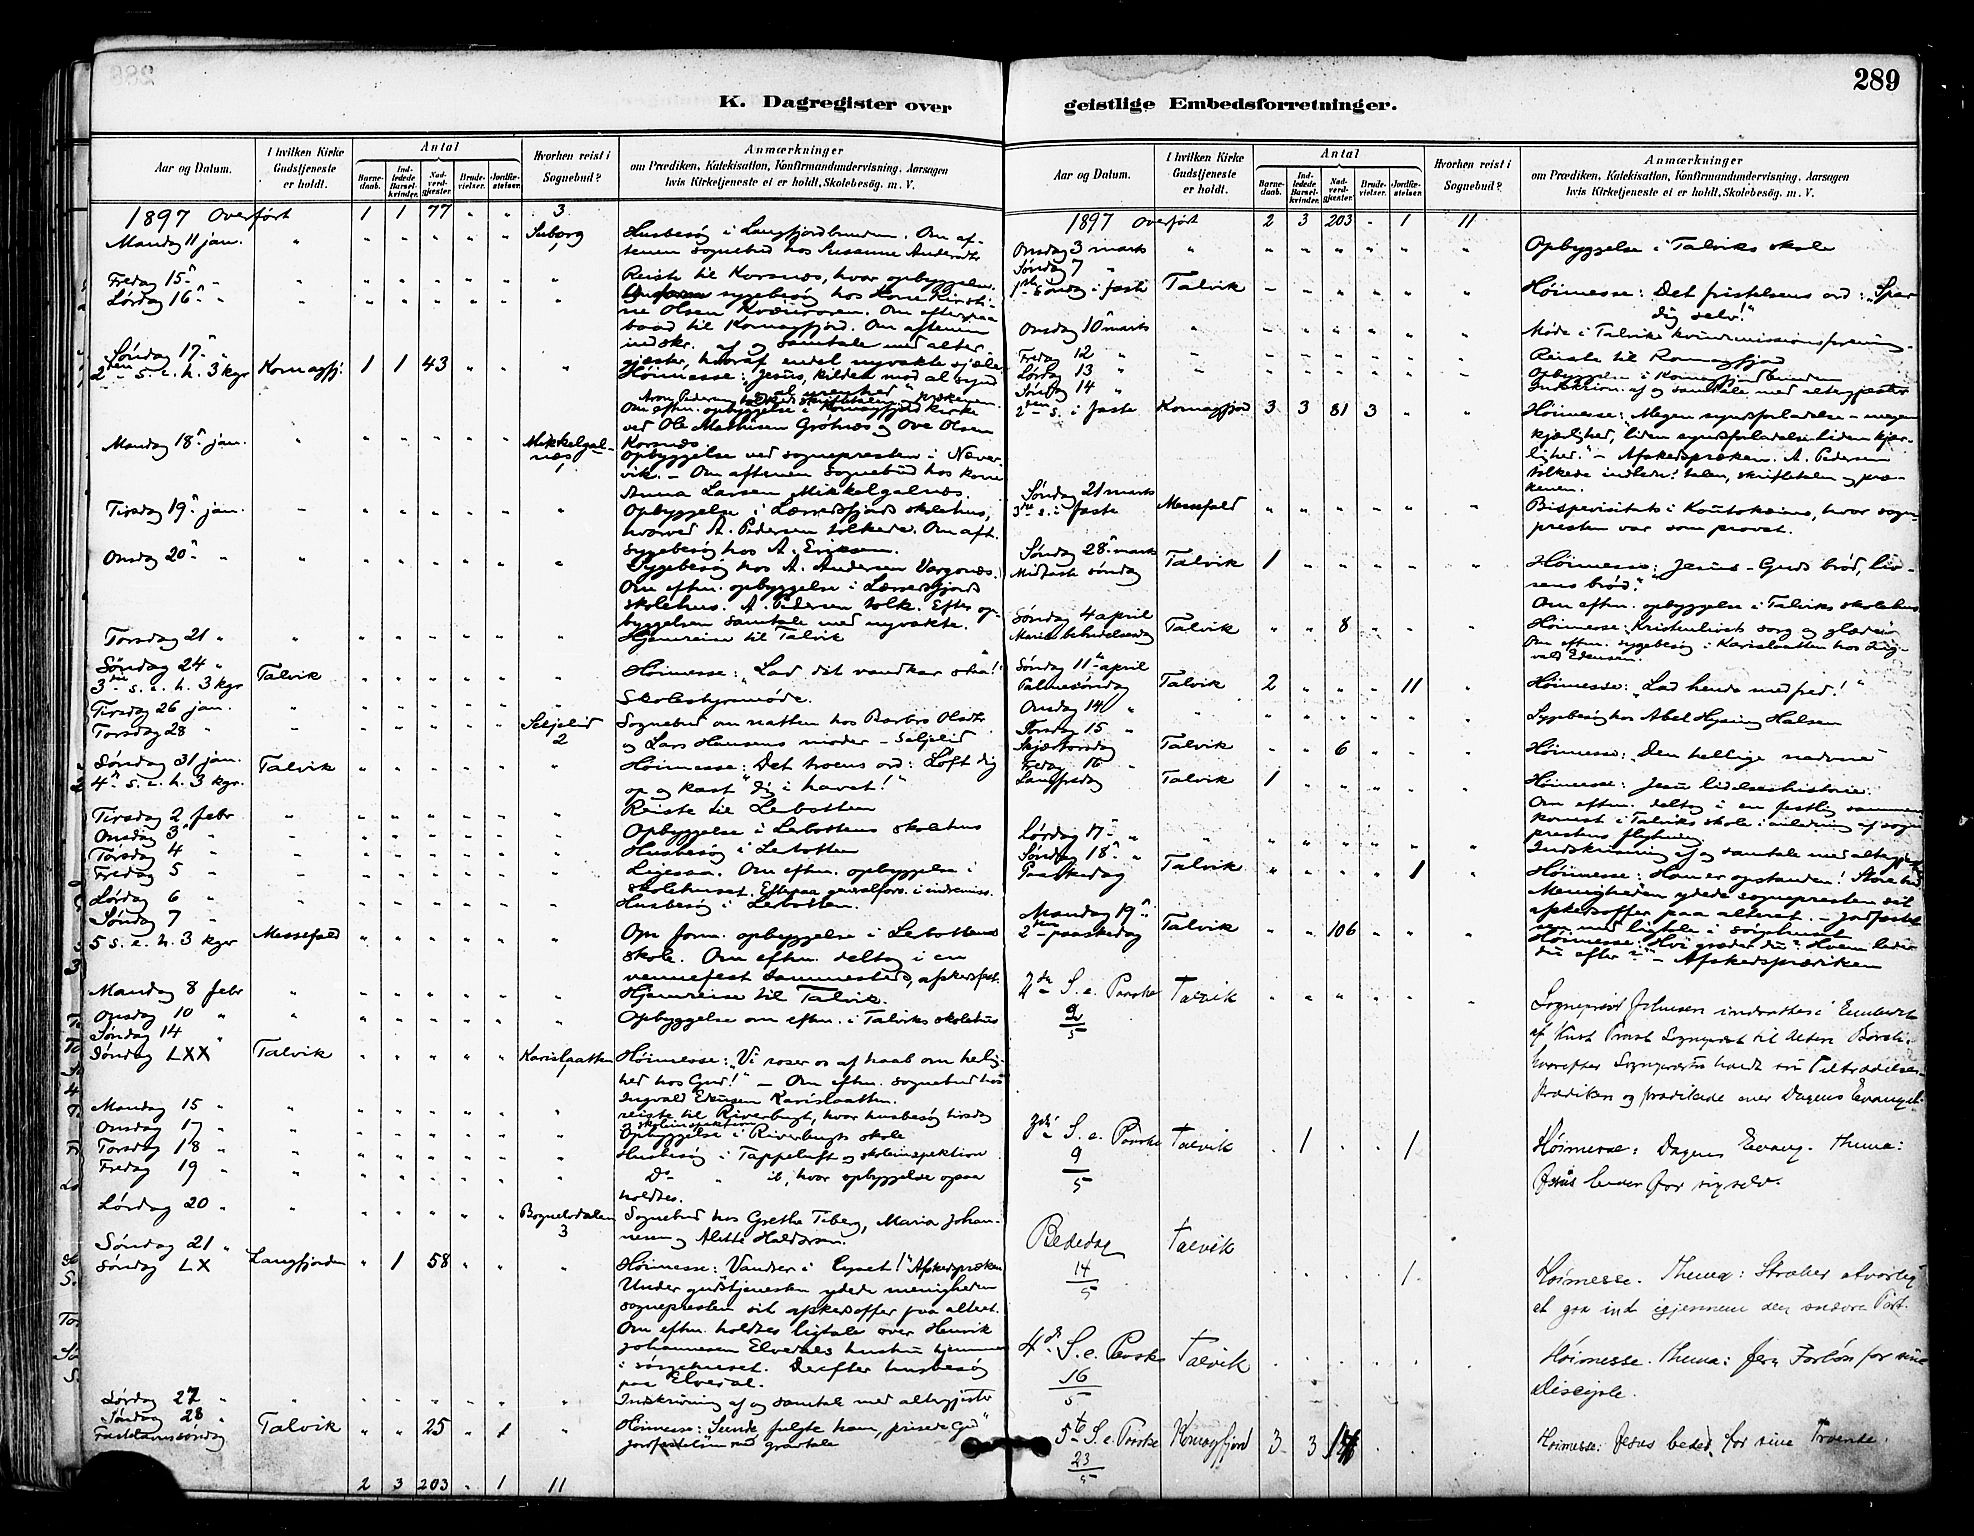 289
K. Dagregister over
geistlige Embedsforretninger.
Aar og Datum.
I hvilken Kirke Gudstjeneste er holdt.
Antal
Barnedaab.
Indledede Barselkvinder.
Nadverdgjester.
Brudevielser.
Jordfæstelser.
Hvorhen reist i Sognebud?
Anmærkninger
om Prædiken, Katekisation, Konfirmandundervisning, Aarsagen
hvis Kirketjeneste ei er holdt, Skolebesög. m. V.
1897 Overført 1 1 77 " " 3
Mandag 11 jan. " Husbesøg i Langfjordbunden. Om af-
tenen sognebud hos Susanne Andersdtr
Fredag 15 " Reiste til Korsnæs, hvor opbyggelse.
Lørdag 16 " sygebesøg hos Kone Kirsti-
ne Olsen Om efterpaa
baad til Komagfjord. Om aftenen
indskr. af og samtale med alter
gjæster, hvoraf endel nyvakte sjæle
Søndag 17 "
2den s. e. h. 3 kgr Komagfj. 1 1 43 " " " Høimesse: Jesus, kilden mod al synd
og urenhed"
Om eftm. opbyggelse i Komagfjord kirke
ved Ole Mathisen Grötnæs og Ove Olsen
Korsnæs.
Mandag 18 jan. " Mikkelgal-
næs 1 Opbyggelse ved sognepresten i Næver-
vik. - Om aftenen sognebud hos kone
Anna Larsen Mikkelgalnæs.
Tirsdag 19 jan. Opbyggelse i Lærredsfjords skolehus,
hvorved A. Pedersen tolkede. Om aft.
sygebesøg hos A. Eriksen.
Onsdag 20 " Sygebesøg hos A. Andersen Vargnæs.
Om eftm. opbyggelse i Lærredsfjords
skolehus. A. Pedersen tolk. Efter op-
byggelsen samtale med nyvakte.
Torsdag 21 " Hjemreise til Talvik
Søndag 24 "
3die s. e. h. 3 kgr Talvik Høimesse: "Lad dit vandkar staa!"
Tirsdag 26 jan. Skolestyremøde.
Torsdag 28 " Seljelid
2 Sognebud om natten hos Barbro Olsdtr
og Lars Hansens moder - Seljelid
Søndag 31 jan.
4 s. e. h. 3 kgr. Talvik Høimesse: Det troens ord: Løft dig
op og kast dig i havet!"
Tirsdag 2 febr Reiste til Lerbotten
Onsdag 3 " Opbyggelse i Lerbottens skolehus
Torsdag 4 " Husbesøg i Lerbotten
Fredag 5 " Om eftm. opbyggelse i
skolehuset. Efterpaa generalfors. i indremiss.
Lørdag 6 " Husbesøg i Lerbotten.
Søndag 7 "
5 s. e. h. 3 kgr Messefald Om form. opbyggelse i Lerbottens
skole. Om eftm. deltog i en
vennefest sammesteds, afskedsfest.
Mandag 8 febr Hjemreise til Talvik.
Onsdag 10 " Opbyggelse om eftm. i Talviks skolehus
Søndag 14 "
Søndag LXX Talvik Karislaatten
1 Høimesse: "Vi roser os af haab om herlig-
hed hos Gud!" - Om eftm. sognebud hos
Ingvald Edensen Karislaatten.
Mandag 15 " reiste til Riverbugt, hvor husbesøg tirsdag
og skoleinspektion
Onsdag 17 " Opbyggelse i Riverbugts skole
Torsdag 18 " Husbesøg i Tappeluft og skoleinspektion
Fredag 19 " Do " ib, hvor opbyggelse ogsaa
holdtes.
Lørdag 20 " Bognelvdalen
3 Sognebud hos Grethe Teberg, Maria Johan-
nesen og Alette Haldorsen.
Søndag 21 "
Søndag LX Langfjorden " 1 58 " " " Høimesse: Vandrer i lyset!" Afskedspræken
Under gudstjenesten ydede menigheden
sognepresten sit afskedsoffer paa alteret.
Om eftm. holdtes ligtale over Henrik
Johannesen Elvedals hustru hjemme
i sørgehuset. Derefter husbesøg
paa Elvedal.
Lørdag 27 " Indskrivning af og samtale med altergjester
Søndag 28 "
Fastelavnssøndag Talvik " " 25 " 1 " Høimesse: Seende fulgte ham, prisede Gud"
Jordfæstelse med gravtale
2 3 203 " 1 11
Aar og Datum.
I hvilken Kirke Gudstjeneste er holdt.
Antal
Barnedaab.
Indledede Barselkvinder.
Nadverdgjester.
Brudevielser.
Jordfæstelser.
Hvorhen reist i Sognebud?
Anmærkninger
om Prædiken, Katekisation, Konfirmandundervisning, Aarsagen
hvis Kirketjeneste ei er holdt, Skolebesög. m. V.
1897 Overført 2 3 203 - 1 11
Onsdag 3 marts " Opbyggelse i Talviks skole
Søndag 7 "
1ste søndag i faste Talvik Høimesse: Det fristelsens ord: "Spar
dig selv!"
Onsdag 10 marts " Møde i Talviks kvindemissionsforening.
Fredag 12 " Reiste til Komagfjord
Lørdag 13 " Opbyggelse i Komagfjordbunden
Søndag 14 " Indskrivn. af og samtale med altergjester
2den s. i faste Komagfjord 3 3 81 3 " " Høimesse: Megen syndsforladelse - megen
kjærlighed, liden syndsforladelse liden kjær-
lighed." - Afskedspræken. A. Pedersen
tolkede indledn. talen, skriftetalen og præ-
kenen.
Søndag 21 marts
3die s. i faste Messefald Bispevisitats i Koutokæino, hvor sogne-
presten var som provst.
Søndag 28 marts
Midfaste søndag Talvik 1 Høimesse: Jesus - Guds brød, liv-
sens brød."
Om eftm. opbyggelse i Talviks skolehus
Søndag 4 april
Maria bebudelsesdag Talvik " " 8 Høimesse: Kristenlivets sorg og glæde
Om eftm. sygebesøg i Karislaatten hos Ing-
vald Edensen.
Søndag 11 april
Palmesøndag Talvik 2 " " " 11 " Høimesse: "Lad hende med fred!"
Onsdag 14 " Sygebesøg hos Abel Hysing Halsen
Torsdag 15 "
Skjærtorsdag Talvik " " 6 Høimesse: Den hellige nadvere
Fredag 16 "
Langfredag Talvik 1 Høimesse: Jesu lidelseshistorie.
Om eftm. deltog i en festlig sammen
komst i Talviks skole i anledning af sogne
prestens flytning
Lørdag 17 " Indskrivning af og samtale med altergjester
Søndag 18 "
Paaskedag Talvik " " " " 1 Høimesse: Han er opstanden!
Menigheden ydede sognepresten sit
afskedsoffer paa alteret. - Jordfæstel-
sen med ligtale i sørgehuset
Mandag 19
2den paaskedag Talvik " " 106 Høimesse: Hvi græder du? Hvem leder
du efter?" - Afskedsprædiken
S. e. Paaske
2/5 Talvik Sogneprest Johnsen indsattes i Embedet
af Konst. Provst Sogneprest til Alten
hvorefter Sognepresten holdt sin Tiltrædelses-
Prædiken og prædikede over Dagens Evangel.
3die S. e. Paaske
9/5 Talvik " 1 " " 1 Høimesse: Dagens Evang. Thema:
Jesus beder for sig selv.
Bededag
14/5 Talvik 1 Høimesse. Thema: Stræber alvorlig
at gaa ind igjennem den snævre Port.
4de S. e. Paaske
16/5 Talvik Høimesse. Thema: Jesu Forbøn for sine
Disciple.
5te S. e. Paaske
23/5 Komagfjord 3 3 Høimesse: Jesus beder for sine Troende.